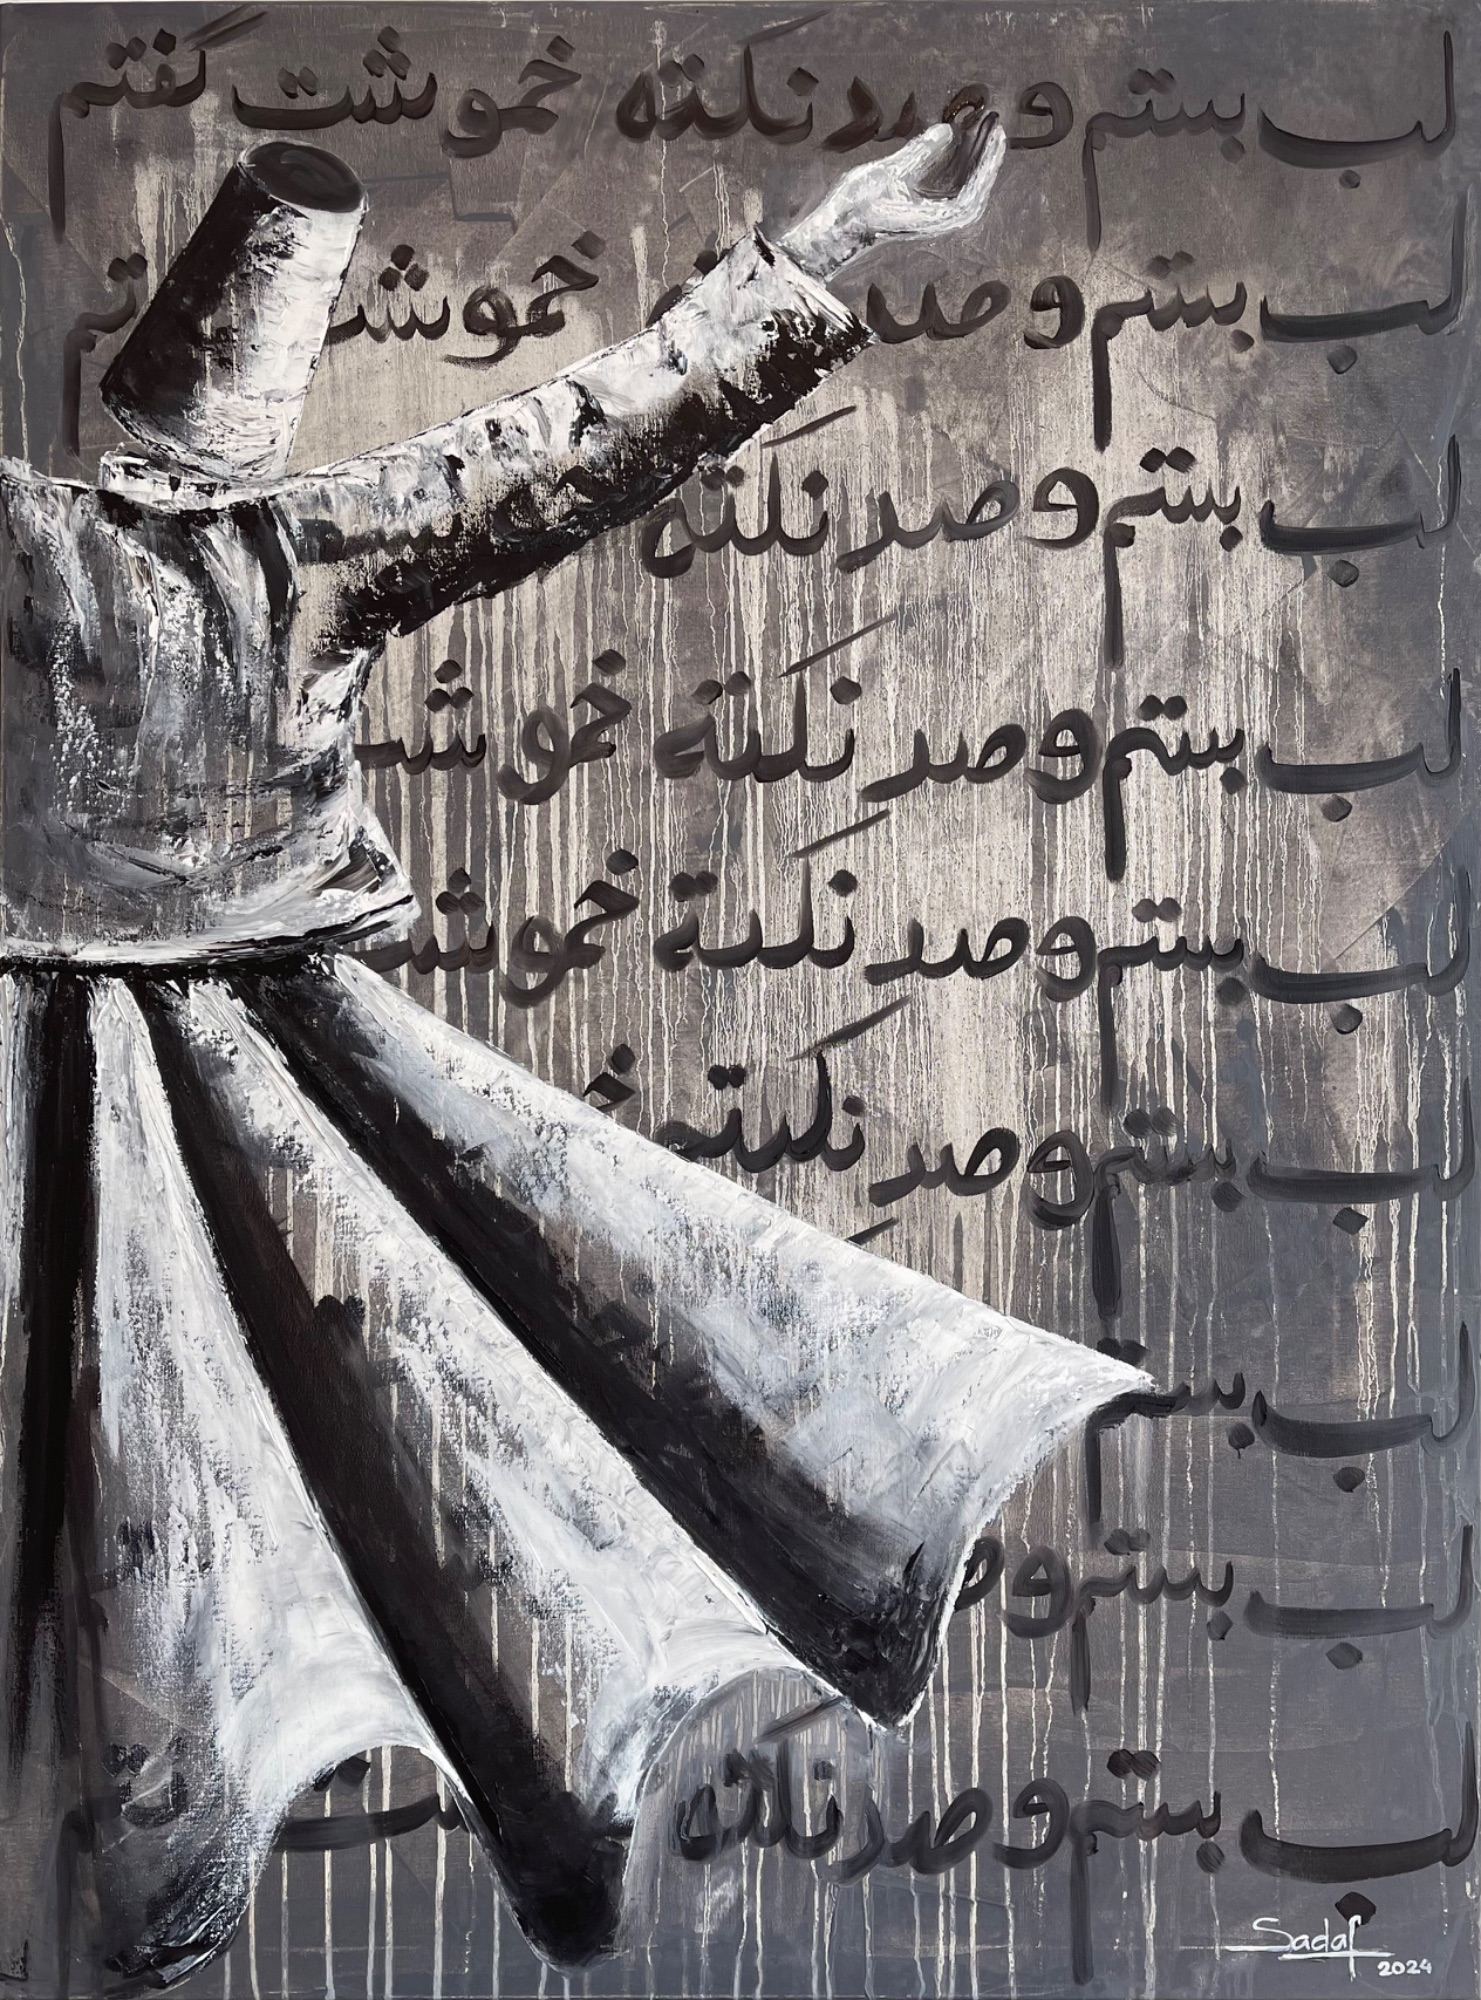 لب بستم و صد نکته خموشت گفتم
لب بستم و صد خموشت
لب بستم و صد نکته
لب بستم و صد نکته خموشت
لب بستم و صد نکته خموشت
لب بستم و صد نکته
لب بستم
لب بستم و
لب بستم و صد نکته
Sadaf
2024